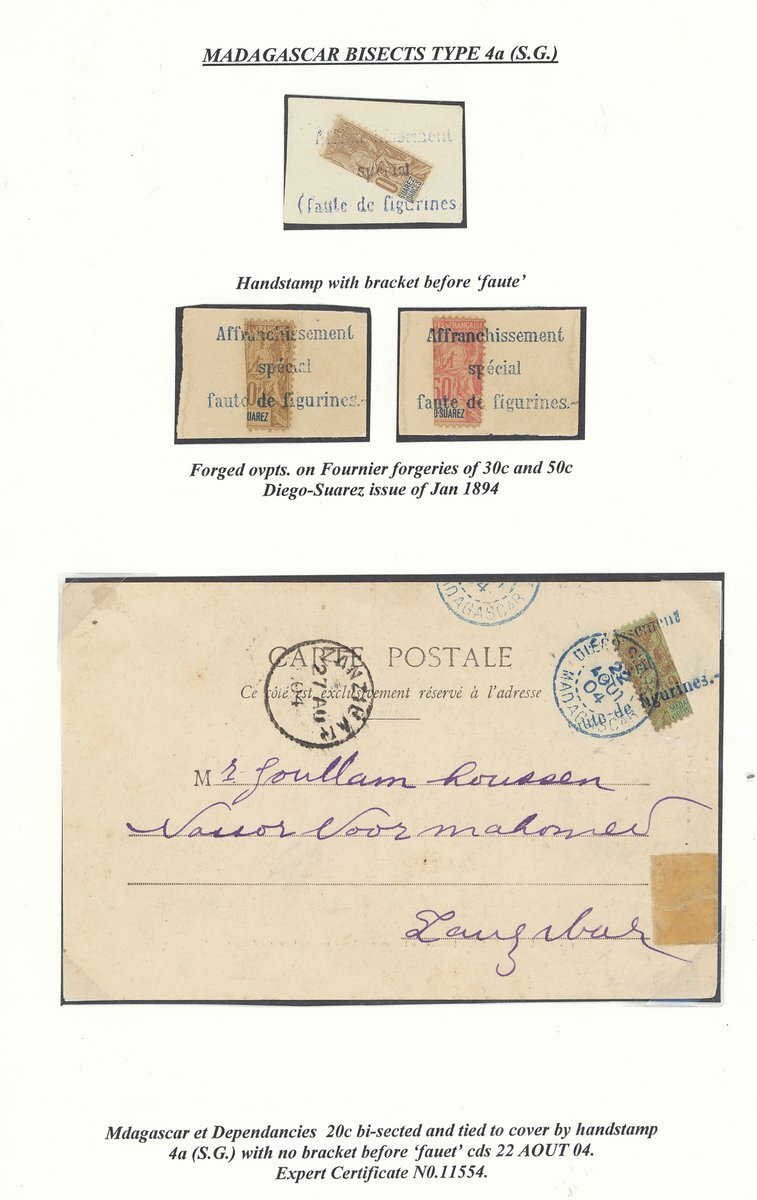 MADAGASCAR BISECTS TYPE 4a (S.G.)
Affranchissement
spécial
(faute de figurines
SUAREZ
Handstamp with bracket before ‘faute’
Affranchissement
spécial
faute de figurines.-
UAREZ
Affranchissement
spécial
faute de figurines.-
50
O-SUAREZ
Forged ovpts. on Fournier forgeries of 30c and 50c
Diego-Suarez issue of Jan 1894
MADAGASCAR
CARTE POSTALE
Ce côté est exclusivement réservé à l’adresse
ZANZIBAR
27 AU
04
DIEGO
22
AOUT
04
MADAGASCAR
ssement
figurines.-
Mr. Goullam houssen
Nassor Noormahomed
Zangibar
Mdagascar et Dependancies 20c bi-sected and tied to cover by handstamp
4a (S.G.) with no bracket before ‘fauet’ cds 22 AOUT 04.
Expert Certificate N0.11554.